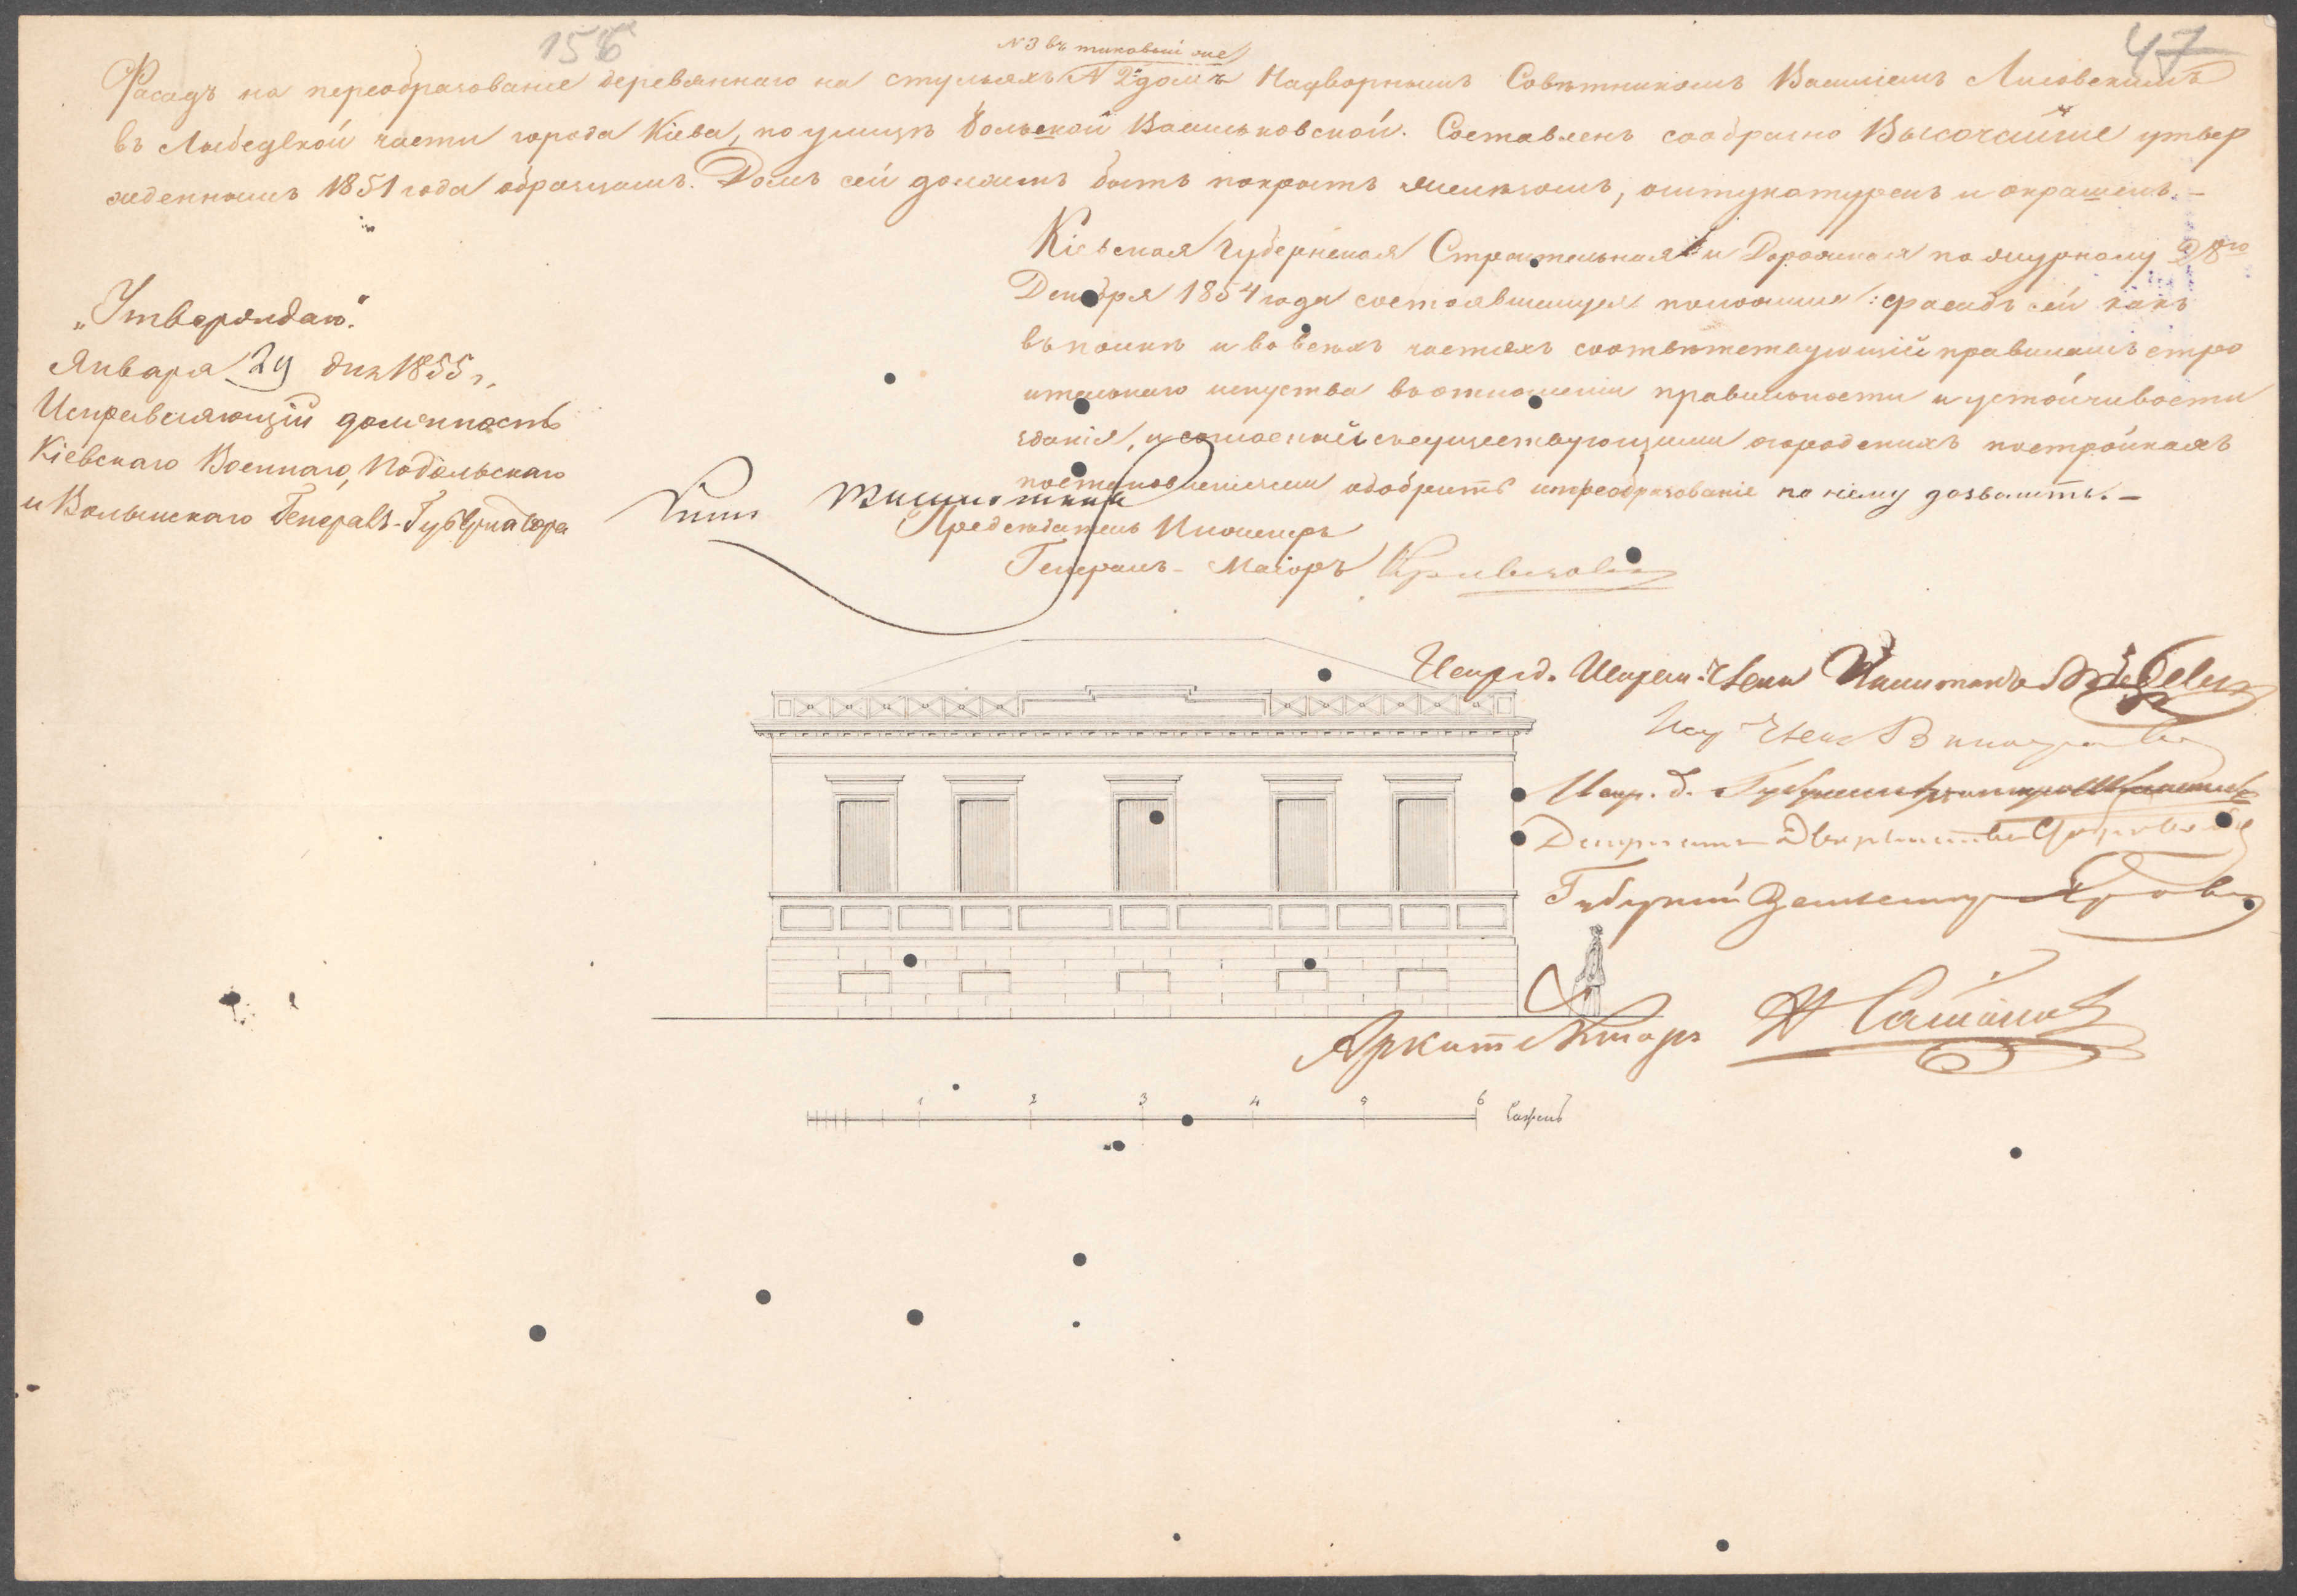 156
47
N 3 въ таковый же
Фасадъ на переобразованіе деревяннаго на стульяхъ N 2й домъ Надворнымъ Совѣтникомъ Василіемъ Лисовскимъ
въ Лыбедской части города Кіева, по улицѣ Больской Васильковской. Составленъ сообразно Высочайше утвер
жденнымъ 1851 года образцамъ. Домъ сей долженъ быть покрытъ желѣзомъ, оштукатуренъ и окрашенъ. –
Кіевская Губернская Строительная и Дорожная по журналу 28го
Декабря 1854 года состоявшемуся положила: фасадъ сей какъ
въ цѣломъ и во всехъ частяхъ соотвѣтствующій правиламъ стро
ительнаго искуства въ отношеніи правильности и устойчивости
зданія, и согласный съ существующими о городскихъ постройкахъ
постановленіями одобрить и преобразованіе по нему дозволить. –
Председатель Инженеръ
Генералъ - Маіоръ Кривцовъ
„Утверждаю."
Января 29 дня 1855 г.
Исправляющій должность
Кіевскаго Военнаго, Подольскаго
и Волынскаго Генералъ-Губернатора
Князь
Испр. д. Искуст. Члена Капитанъ
Чле
Испр. д.
Депутатъ Дворянства
Губернскій Землемеръ
Архитекторъ
1 2 3 4 5 6 Сажень